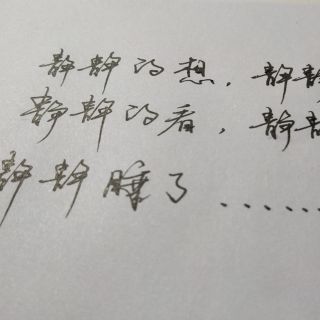 静静的想，静静
静静的看，静静
静静睡了......